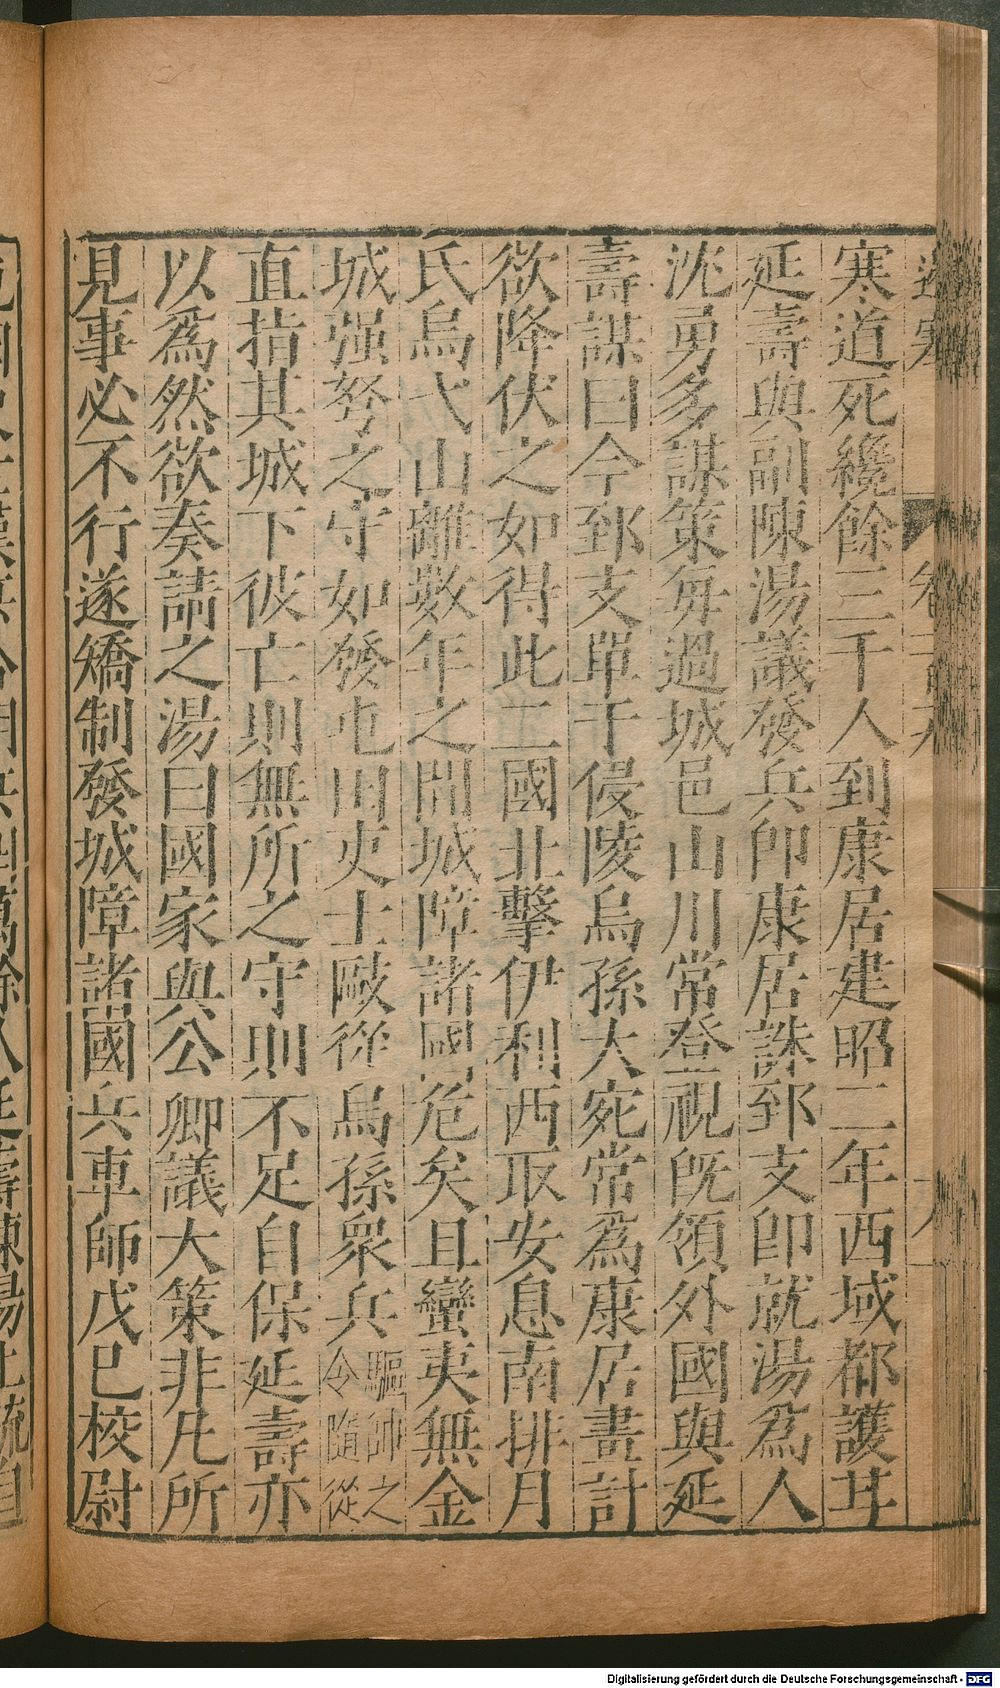 寒道死纔餘三千人到康居建昭二年西域都護甘
延壽與副陳湯議發兵卽康居誅郅支卽就湯為人
沈勇多謀策每過城邑山川常登視旣領外國與延
壽謀曰今郅支單于侵陵烏孫大宛常為康居畫計
欲降伏之如得此二國北擊伊利西取安息南排月
氏烏弋山離數年之間城障諸國危矣且蠻夷無金
城强弩之守如發屯田吏士敺從烏孫衆兵驅帥之令隨從
直指其城下彼亡則無所之守則不足自保延壽亦
以為然欲奏請之湯曰國家與公卿議大策非凡所
見事必不行遂矯制發城障諸國兵車師戊巳校尉
Digitalisierung gefördert durch die Deutsche Forschungsgemeinschaft - DFG